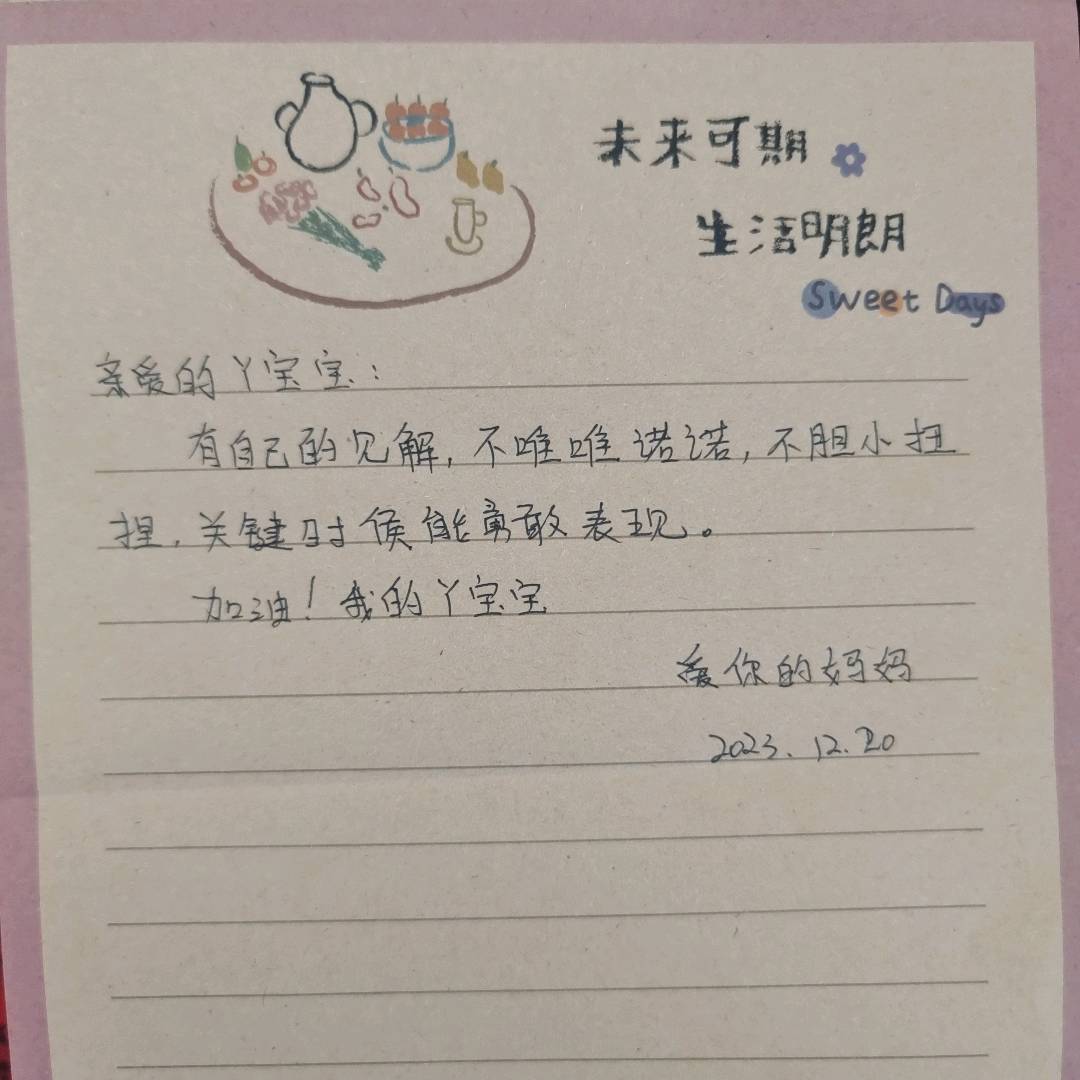 未来可期
生活明朗
Sweet Days
亲爱的丫宝宝：
有自己的见解，不唯唯诺诺，不胆小扭
捏，关键时候能勇敢表现。
加油！我的丫宝宝
爱你的妈妈
2023.12.20